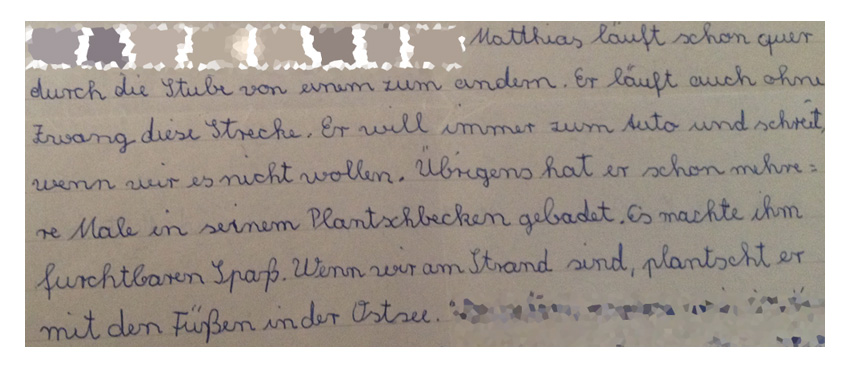 Matthias läuft schon quer
durch die Stube von einem zum andern. Er läuft auch ohne
Zwang diese Strecke. Er will immer zum Auto und schreit,
wenn wir es nicht wollen. Übrigens hat er schon mehre=
re Male in seinem Plantschbecken gebadet. Es machte ihm
furchtbaren Spaß. Wenn wir am Strand sind, plantscht er
mit den Füßen in der Ostsee.